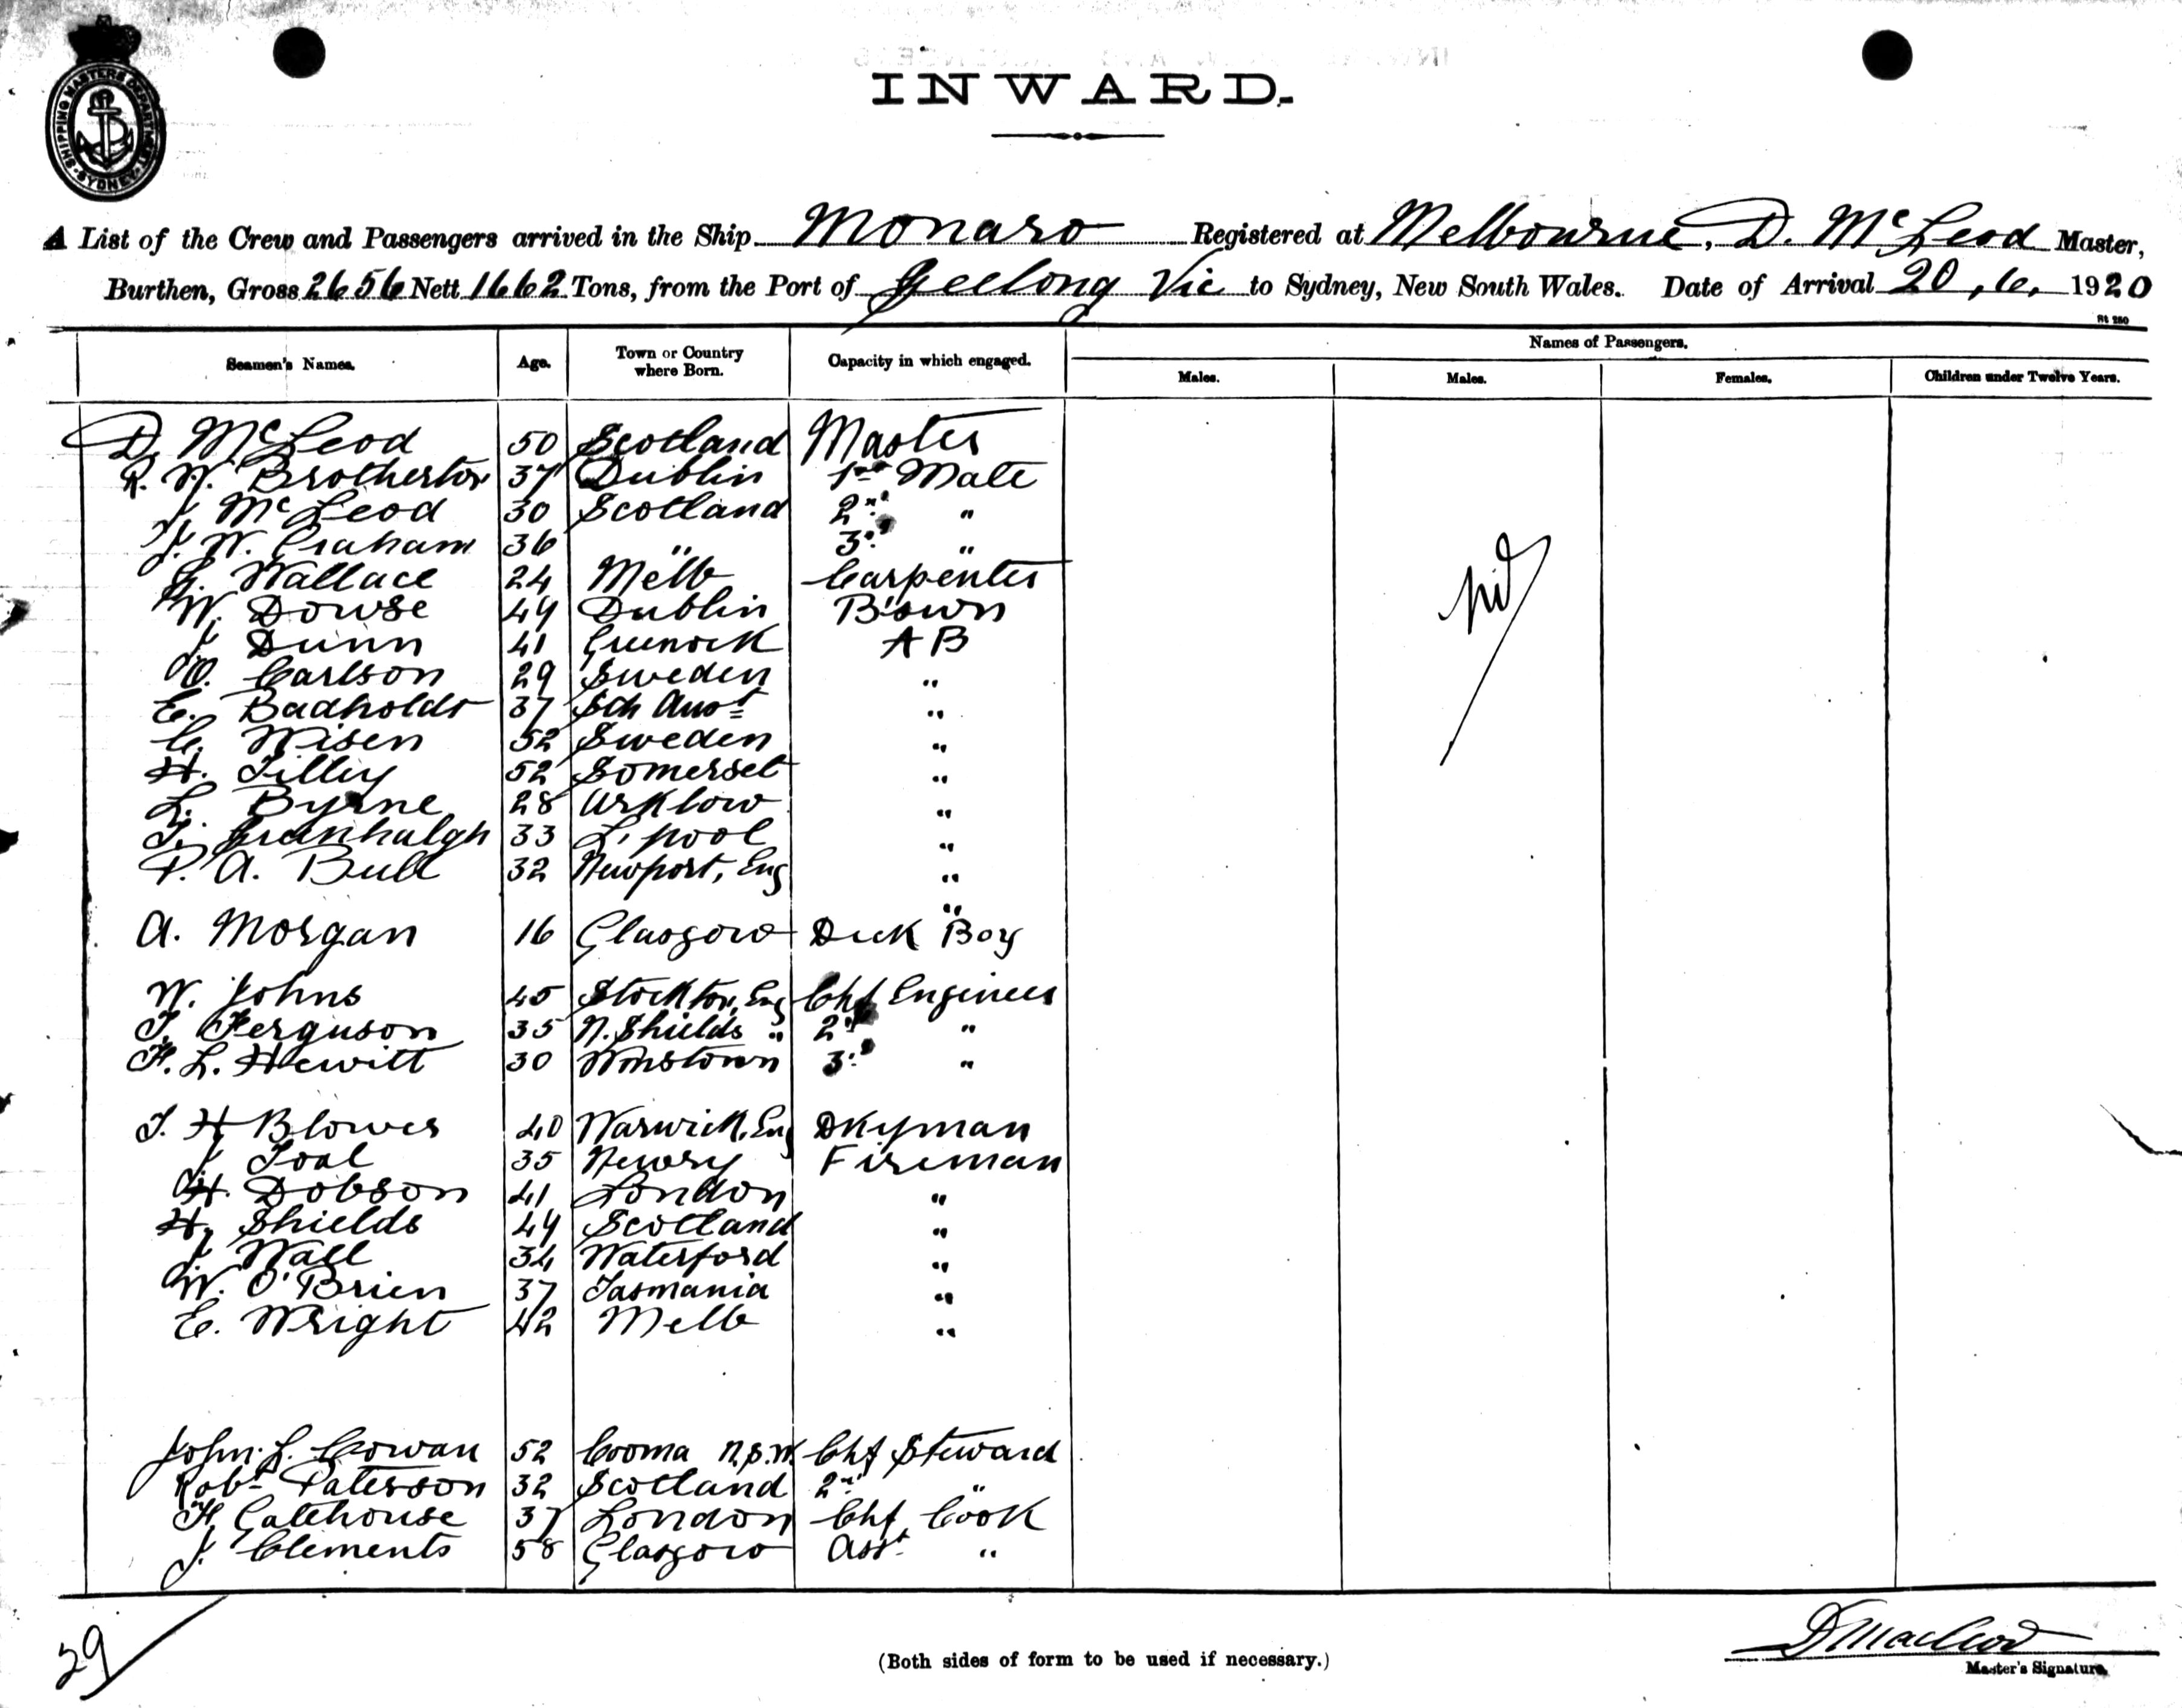 SHIPPING MASTERS DEPARTMENT SYDNEY
INWARD.
A List of the Crew and Passengers arrived in the Ship Monaro Registered at Melbourne, D. McLeod Master,
Burthen, Gross 2656 Nett 1662 Tons, from the Port of Geelong Vic to Sydney, New South Wales. Date of Arrival 20, 6, 1920
St 280
Seamen's Names. Age. Town or Country where Born. Capacity in which engaged. Names of Passengers.
Males. Males. Females. Children under Twelve Years.
D. McLeod 50 Scotland Master
R. W. Brotherton 37 Dublin 1st Mate
J. McLeod 30 Scotland 2nd "
J. W. Graham 36 " 3rd "
Wallace 24 Melb Carpenter
W. Dowse 49 Dublin B'swn
J Dunn 41 Greenock AB
O. Carlson 29 Sweden "
E. Badholdt 37 Sth Aust "
C. Wisen 52 Sweden "
H. Tilley 52 Somerset "
L. Byrne 28 Arklow "
T. Greenhalgh 33 L'pool "
P. A. Bull 32 Newport, Eng "
"
A. Morgan 16 Glasgow Deck Boy
W. Johns 45 Stockton, Eng Chf Engineer
T. Ferguson 35 N. Shields " 2nd "
F. L. Hewitt 30 Wmstown 3rd "
T. H Blower 40 Warwick, Eng Dkyman
J Toal 35 Newry Fireman
H. Dobson 41 London "
H. Shields 49 Scotland "
J Wall 34 Waterford "
W. O'Brien 37 Tasmania "
E. Wright 42 Melb "
John. L. Cowan 52 Cooma N.S.W. Chf Steward
Robt Paterson 32 Scotland 2nd "
H Gatehouse 37 London Chf, Cook
J. Clements 58 Glasgow Asst "
nil
29
(Both sides of form to be used if necessary.)
D Macleod
Master's Signature.